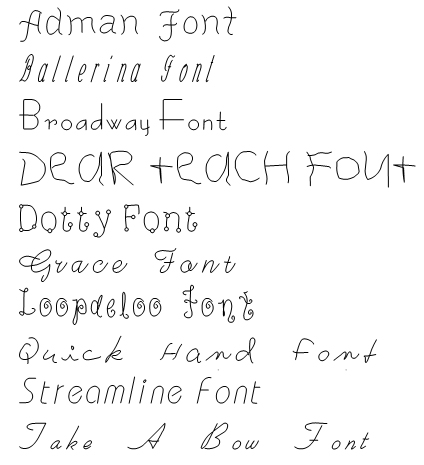 Adman Font
Ballerina Font
Broadway Font
DEAR tEACH FOUt
Dotty Font
Grace Font
Loopdeloo Font
Quick Hand Font
Streamline Font
Take A Bow Font